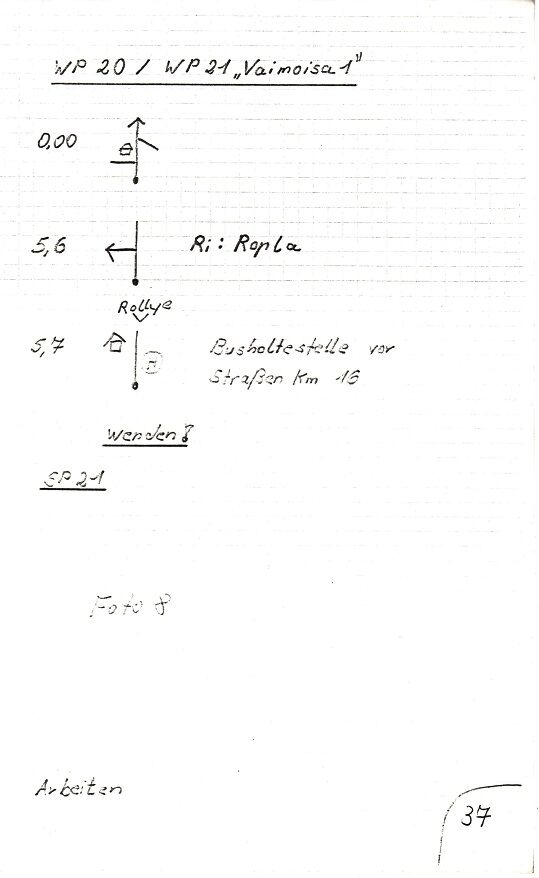 WP 20 / WP 21 „Vaimoisa 1"
0,00
5,6 Ri: Ropla
Rollye
5,7 H Bushaltestelle vor
Straßen Km 16
Wenden!
SP 21
Foto 8
Arbeiten
37